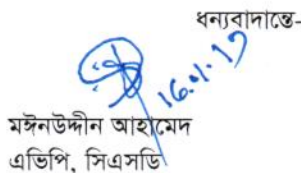 ধন্যবাদান্তে-
মঈনউদ্দীন আহামেদ
এভিপি, সিএসডি